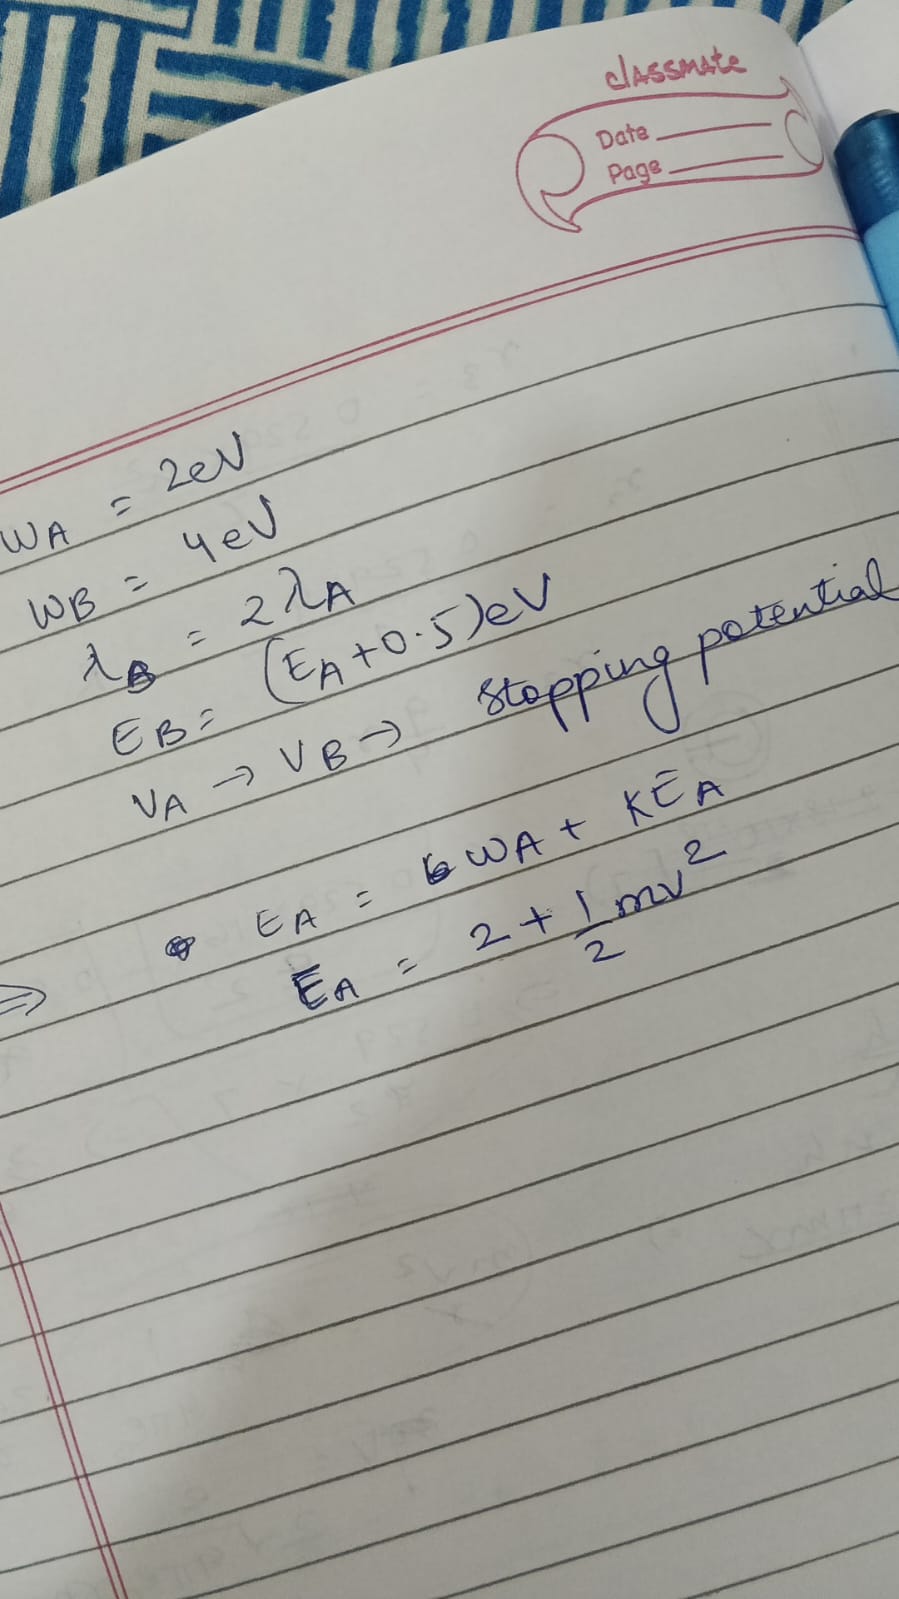 classmate
Date
Page
WA = 2eV
WB = 4eV
λB = 2λA
EB = (EA+0.5)eV
VA → VB → stopping potential
EA = WA + KEA
⇒ EA = 2 + 1/2 mv²